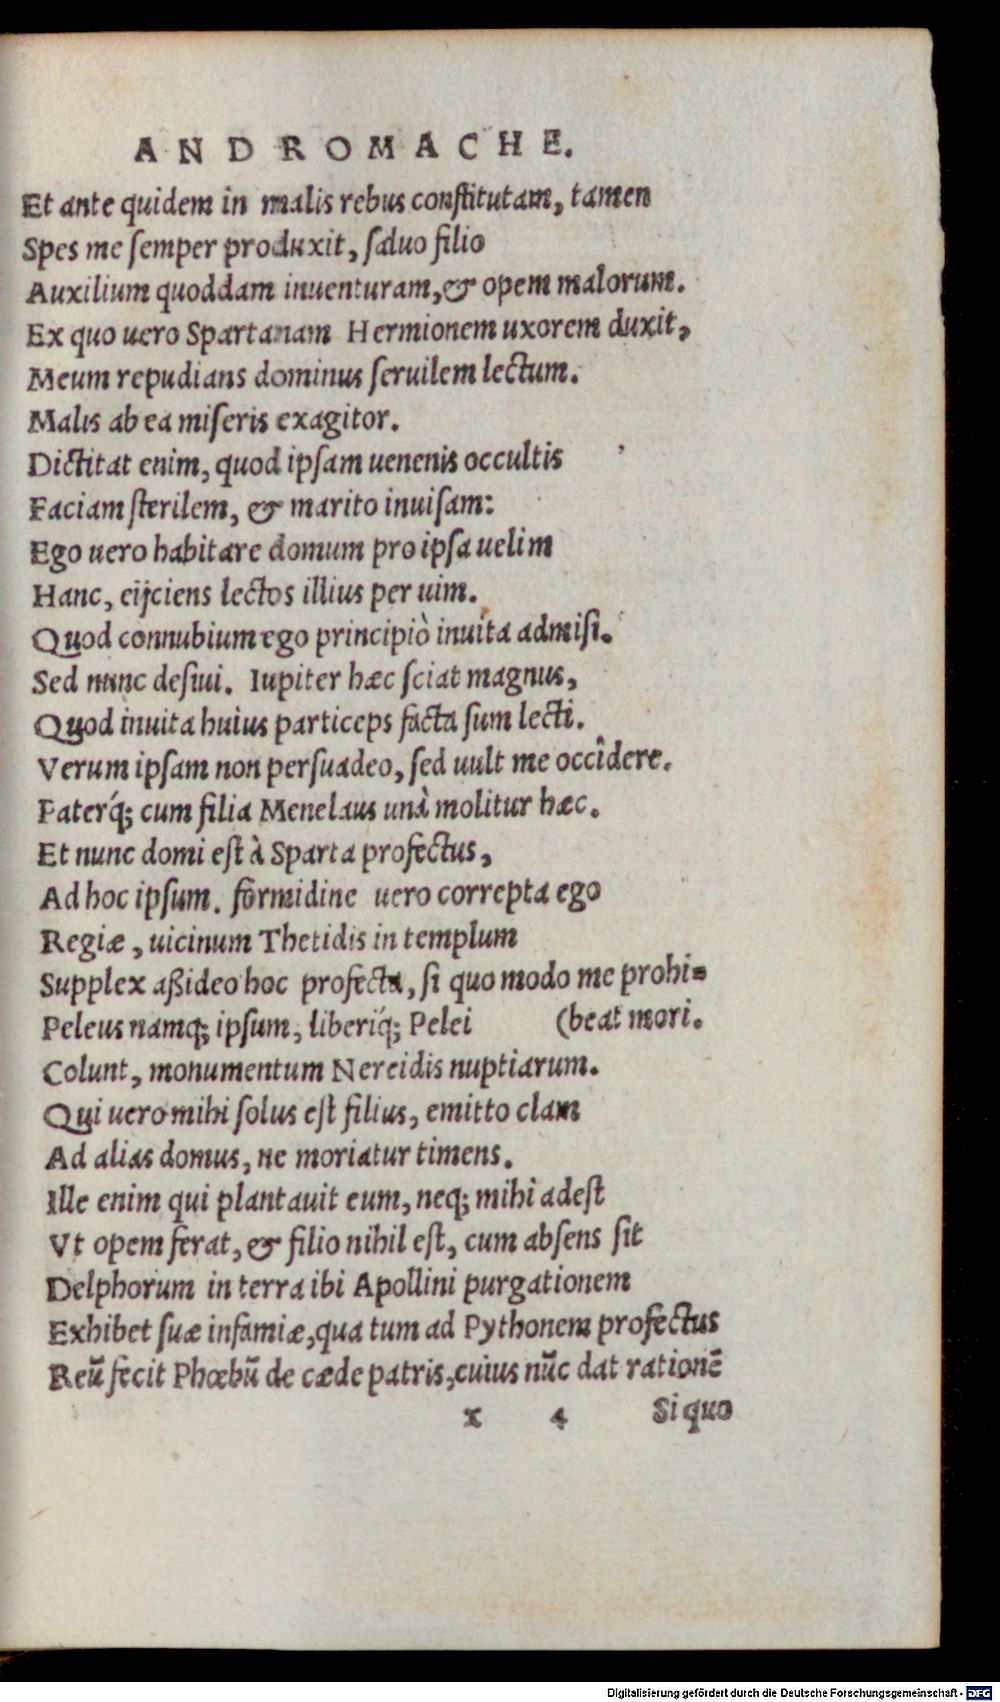 ANDROMACHE.
Et ante quidem in malis rebus constitutam, tamen
Spes me semper produxit, saluo filio
Auxilium quoddam inuenturam, & opem malorum.
Ex quo uero Spartanam Hermionem uxorem duxit,
Meum repudians dominus seruilem lectum.
Malis ab ea miseris exagitor.
Dictitat enim, quod ipsam uenenis occultis
Faciam sterilem, & marito inuisam:
Ego uero habitare domum pro ipsa uelim
Hanc, eijciens lectos illius per uim.
Quod connubium ego principiò inuita admisi.
Sed nunc desiui. Iupiter hæc sciat magnus,
Quod inuita huius particeps facta sum lecti.
Verum ipsam non persuadeo, sed uult me occîdere.
Paterq́; cum filia Menelaus unà molitur hæc.
Et nunc domi est à Sparta profectus,
Ad hoc ipsum. formidine uero correpta ego
Regiæ, uicinum Thetidis in templum
Supplex aßideo hoc profecta, si quo modo me prohi=
Peleus namq; ipsum, liberiq́; Pelei (beat mori.
Colunt, monumentum Nereidis nuptiarum.
Qui uero mihi solus est filius, emitto clam
Ad alias domus, ne moriatur timens.
Ille enim qui plantauit eum, neq; mihi adest
Vt opem ferat, & filio nihil est, cum absens sit
Delphorum in terra ibi Apollini purgationem
Exhibet suæ infamiæ, qua tum ad Pythonem profectus
Reũ fecit Phœbũ de cæde patris, cuius nũc dat rationẽ
x 4 Si quo
Digitalisierung gefördert durch die Deutsche Forschungsgemeinschaft - DFG